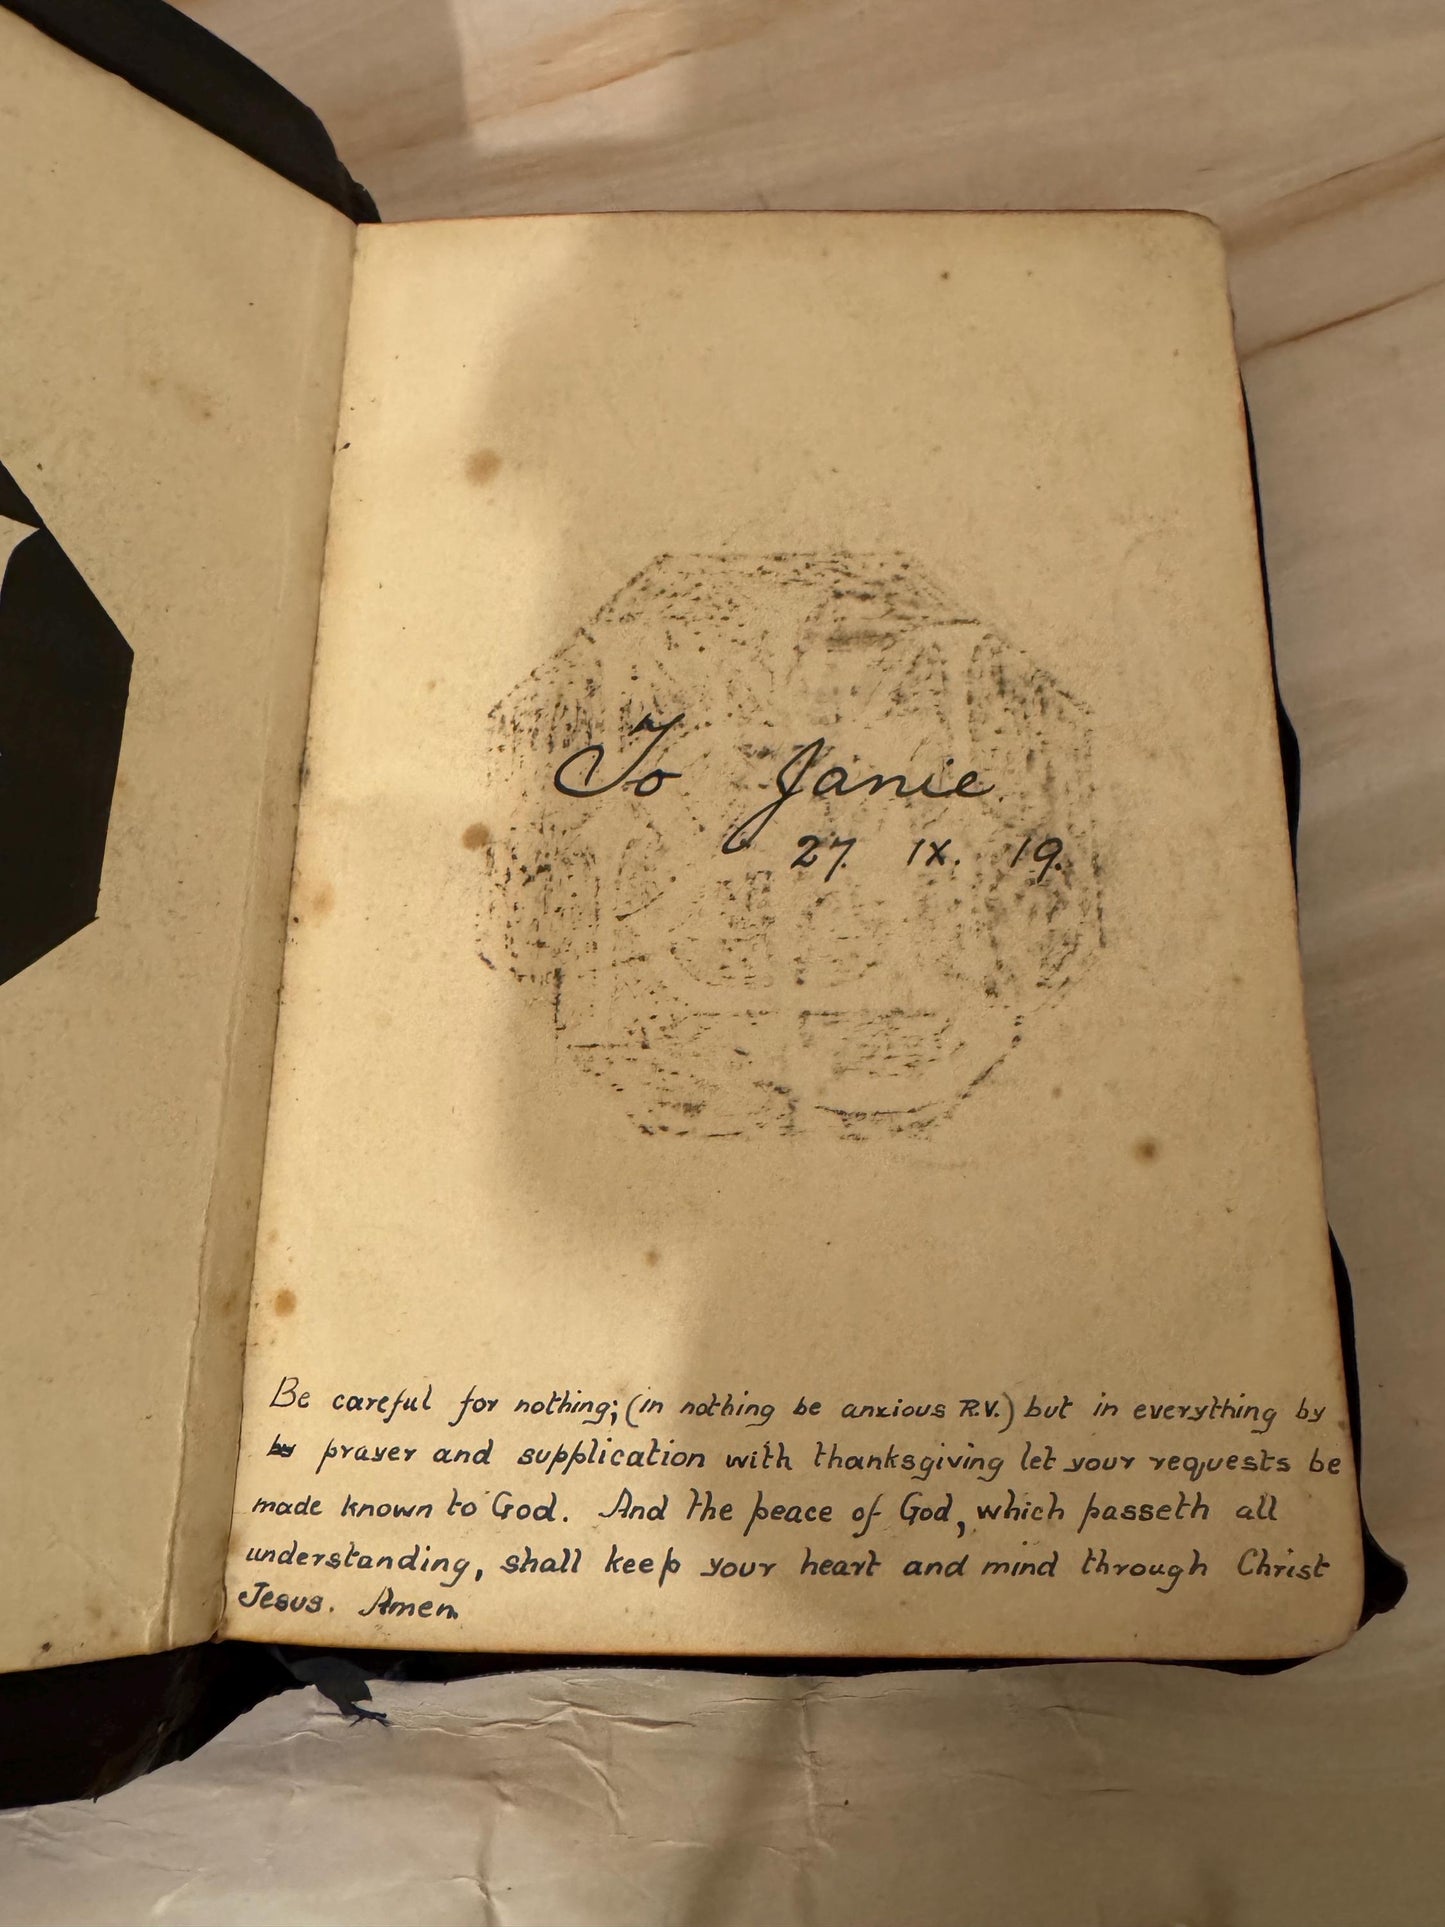 To Janie
27. IX. 19.
Be careful for nothing; (in nothing be anxious R.V.) but in everything by
by prayer and supplication with thanksgiving let your requests be
made known to God. And the peace of God, which passeth all
understanding, shall keep your heart and mind through Christ
Jesus. Amen.